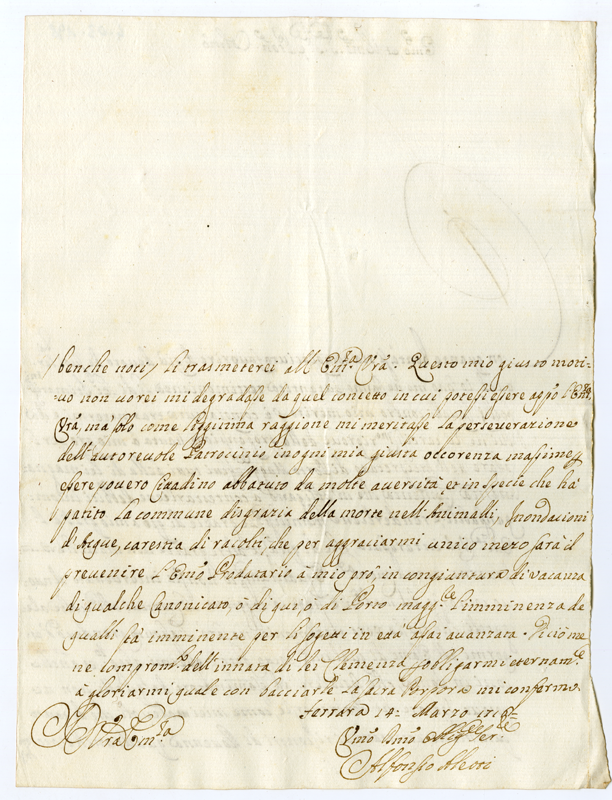 /benche noti/ li trasmeterei all Em:za Vrâ. Questo mio giusto moti=
=uo non uorei mi degradase da quel concetto in cui potesi esere appô l'Em:za
Vrâ, ma solo come legitima raggione mi meritase la perseverazione
dell'autorevole Patrocinio in ogni mia giusta occorenza masime p
esere pouero Citadino abbatuto da molte auersità, et in specie che hà
patito la commune disgrazia della morte nell'Animalli, Inondazioni
d'Acque, carestia di racolti, che per aggraciarmi unico mezo sarà il
prevenire l'Emô Prodatario à mio prò, in congiuntura di vacanza
di qualche Canonicato, ò di qui, ò di Porto magg:re l'imminenza de
qualli stà imminente per li sogetti in età asai auanzata.
ne dell'innata di lei Clemenza l'obligarmi eternam:te
à gloriarmi quale con bacciarle la sacra Porpora mi confermo
Ferrara 14: Marzo
Vrâ Em:za
Vmô
Alfonso Aleoti